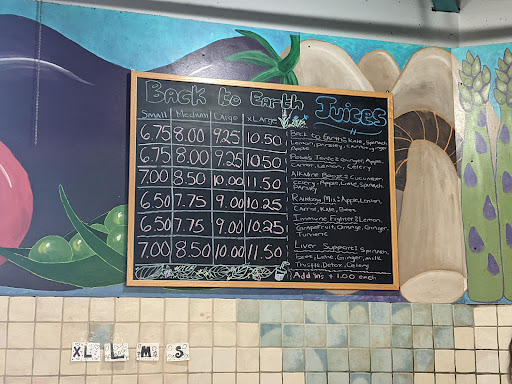 Back to Earth Juices
Small Medium Large xLarge
6.75 8.00 9.25 10.50
6.75 8.00 9.25 10.50
7.00 8.50 10.00 11.50
6.50 7.75 9.00 10.25
6.50 7.75 9.00 10.25
7.00 8.50 10.00 11.50
Back to Earth: Kale, Spinach
Lemon, parsley, Ginger
Apple
Tonic: Ginger, Apple
Carrot, Lemon, Celery
Alkaline Boost: Cucumber
Celery, Apple, Lime, Spinach
Parsley
Rainbow Mix: Apple, Lemon
Carrot, Kale, Beet
Immune Fighter: Lemon,
Grapefruit, Orange, Ginger,
Turmeric
Liver Support: Spinach,
Beet, Lime, Ginger, milk
Thistle, Detox, Celery
Add ins + 1.00 each
XL L M S